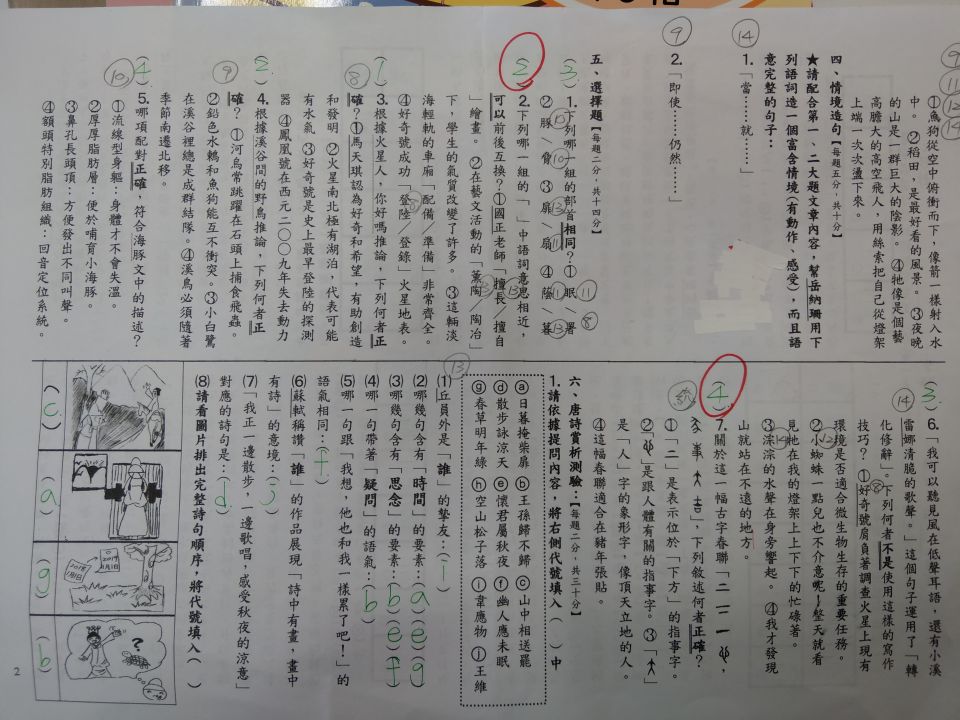 ①魚狗從空中俯衝而下，像箭一樣射入水
中。②稻田，是最好看的風景。③夜晚
的山是一群巨大的陰影。④牠像是個藝
高膽大的高空飛人，用絲索把自己從燈架
上端一次次盪下來。
四、情境造句【每題五分，共十四分】
★請配合第一、二大題文章內容，幫岳納珊用下
列語詞造一個富含情境(有動作、感受)，而且語
意完整的句子：
⑭
1.「當……就……」
⑨
2.「即使……仍然……」
五、選擇題【每題二分，共十四分】
(3)1.下列哪一組的部首相同？①眠／署
②豚／骨 ③扉／扇 ④蔭／暮
(2)2.下列哪一組的「」中語詞意思相近，
可以前後互換？①國正老師「擅長／擅自
」繪畫。②在藝文活動的「薰陶／陶冶」
下，學生的氣質改變了許多。③這輛淡
海輕軌的車廂「配備／準備」非常齊全。
④好奇號成功「登陸／登錄」火星地表。
(1)3.根據火星人，你好嗎推論，下列何者正
確？①馬天琪認為好奇和希望，有助創造
和發明 ②火星南北極有湖泊，代表可能
有水氣 ③好奇號是史上最早登陸的探測
器 ④鳳凰號在西元二〇〇九年失去動力
(2)4.根據溪谷間的野鳥推論，下列何者正
確？①河烏常跳躍在石頭上捕食飛蟲。
②鉛色水鶇和魚狗能互不衝突。③小白鷺
在溪谷裡總是成群結隊。④溪鳥必須隨著
季節南遷北移。
(4)5.哪項配對正確，符合海豚文中的描述？
①流線型身軀：身體才不會失溫。
②厚厚脂肪層：便於哺育小海豚。
③鼻孔長頭頂：方便發出不同叫聲。
④額頭特別脂肪組織：回音定位系統。
(3)6.「我可以聽見風在低聲耳語，還有小溪
雷娜清脆的歌聲。」這個句子運用了「轉
化修辭」，下列何者不是使用這樣的寫作
技巧？①好奇號肩負著調查火星上現有
環境是否適合微生物生存的重要任務。
②小蜘蛛一點兒也不介意呢！整天就看
見牠在我的燈架上上下下的忙碌著。
③淙淙的水聲在身旁響起。④我才發現
山就站在不遠的地方。
(4)7.關於這一幅古字春聯「
」，下列敘述何者正確？
①「二」是表示位於「下方」的指事字。
②「」是跟人體有關的指事字。③「」
是「人」字的象形字，像頂天立地的人。
④這幅春聯適合在豬年張貼。
六、唐詩賞析測驗：【每題二分，共三十分】
1.請依據提問內容，將右側代號填入( )中
ⓐ日暮掩柴扉 ⓑ王孫歸不歸 ⓒ山中相送罷
ⓓ散步詠涼天 ⓔ懷君屬秋夜 ⓕ幽人應未眠
ⓖ春草明年綠 ⓗ空山松子落 ⓘ韋應物 ⓙ王維
⑴丘員外是「誰」的摯友：(i)
⑵哪幾句含有「時間」的要素：(a)(e)(g)
⑶哪幾句含有「思念」的要素：(b)(e)(f)
⑷哪一句帶著「疑問」的語氣：(b)
⑸哪一句跟「我想，他也和我一樣累了吧！」的
語氣相同：(f)
⑹蘇軾稱讚「誰」的作品展現「詩中有畫，畫中
有詩」的意境：(j)
⑺「我正一邊散步，一邊歌唱，感受秋夜的涼意」
對應的詩句是：(d)
⑻請看圖片排出完整詩句順序，將代號填入( )
(c)
(a)
(g)
(b)
2